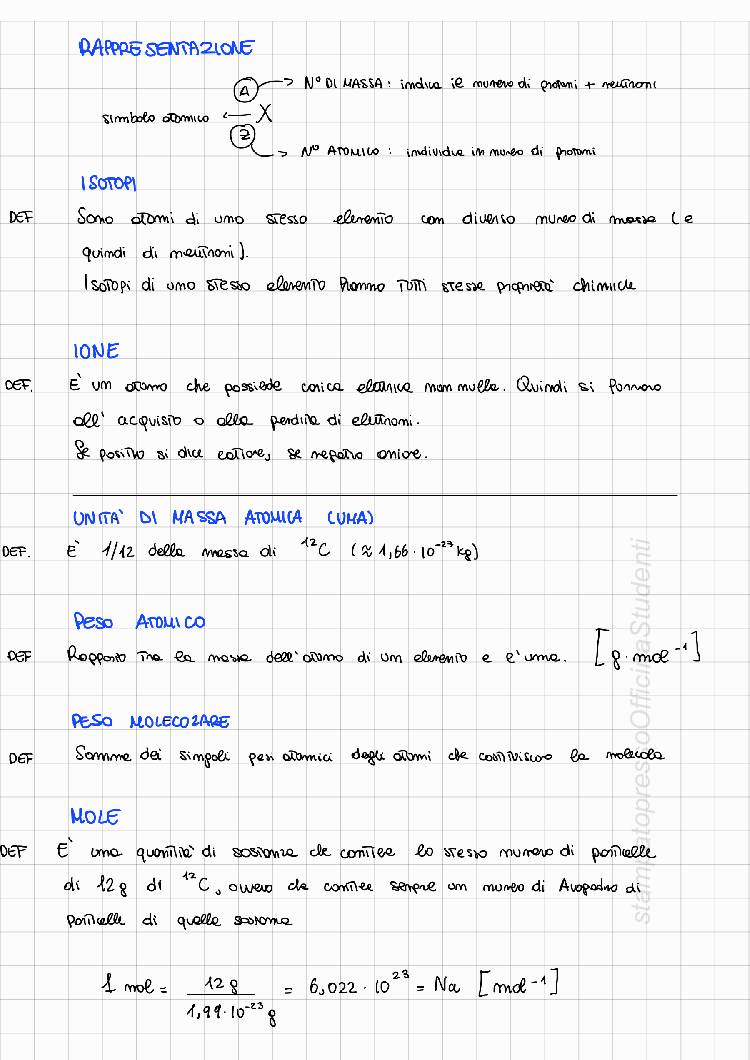 RAPPRESENTAZIONE
A → N° DI MASSA : indica il numero di protoni + neutroni
simbolo atomico ← X
Z → N° ATOMICO : individua in numero di protoni
ISOTOPI
DEF Sono atomi di uno stesso elemento con diverso numero di massa (e
quindi di neutroni).
Isotopi di uno stesso elemento hanno TUTTI stesse proprietà chimiche
IONE
DEF. È un atomo che possiede carica elettrica non nulla. Quindi si formano
all' acquisto o alla perdita di elettroni.
Se positivo si dice catione, se negativo anione.
UNITA' DI MASSA ATOMICA (UMA)
DEF. È 1/12 della massa di ¹²C (≈ 1,66 · 10⁻²³ kg)
PESO ATOMICO
DEF Rapporto tra la massa dell'atomo di un elemento e l'uma. [g · mol⁻¹]
PESO MOLECOLARE
DEF Somma dei singoli pesi atomici degli atomi che costituiscono la molecola
MOLE
DEF È una quantità di sostanza che contiene lo stesso numero di particelle
di 12 g di ¹²C, ovvero che contiene sempre un numero di Avogadro di
particelle di quella sostanza
1 mol = 12 g / 1,99 · 10⁻²³ g = 6,022 · 10²³ = Na [mol⁻¹]
stampatopressoOfficinaStudenti